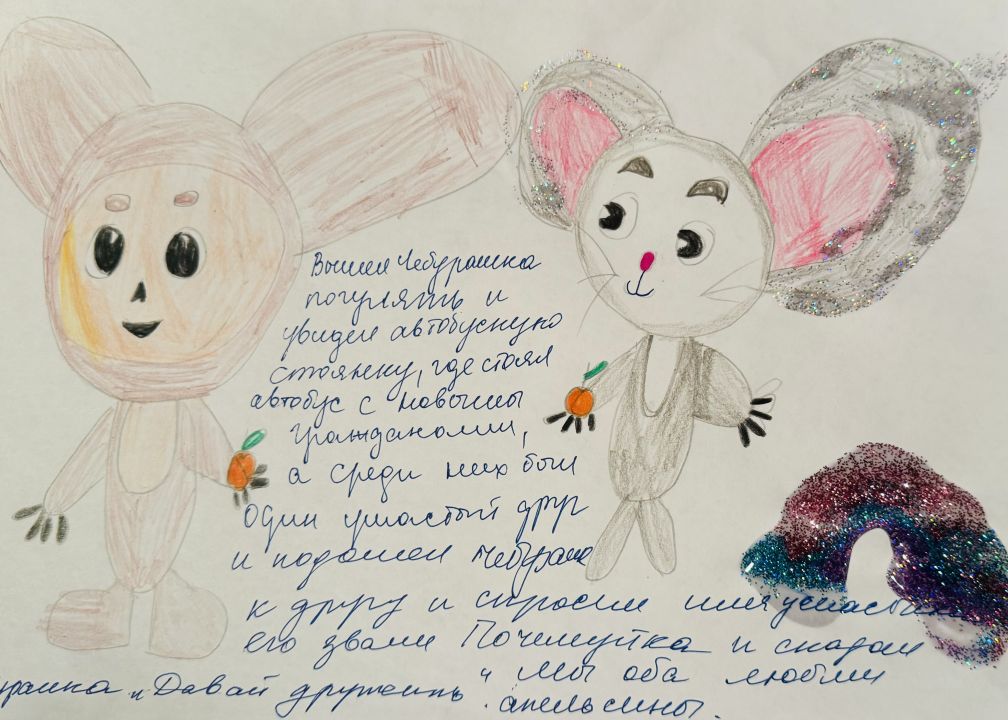 Вышел Чебурашка
погулять и
увидел автобусную
стоянку, где стоял
автобус с новыми
гражданами,
а среди них был
один ушастый друг
и подошел Чебураш
к другу и спросил имя ушастика
его звали Почемутка и сказал
рашка "Давай дружить" мы оба любим
апельсины.